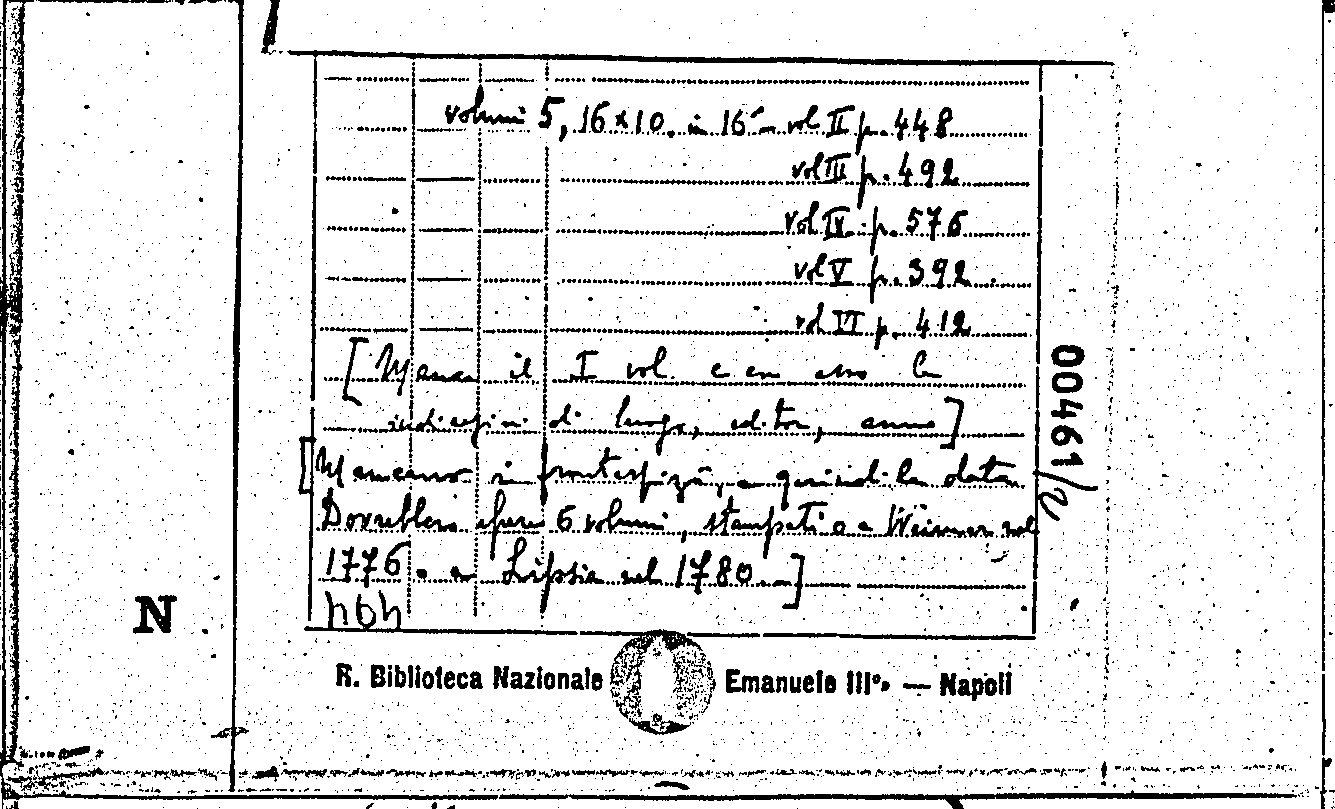 volumi 5, 16x10. in 16° - vol II p. 448
vol III p. 492
vol IV p. 576
vol V p. 392
vol VI p. 412
[Manca il I vol. e con esso le
indicazioni di luogo, editore, anno]
[Mancano i frontespizi, e quindi la data.
Dovrebbero essere 6 volumi, stampati o a Weimar nel
1776. o a Lipsia nel 1780.]
00461/2
N
R. Biblioteca Nazionale Emanuele III°» — Napoli